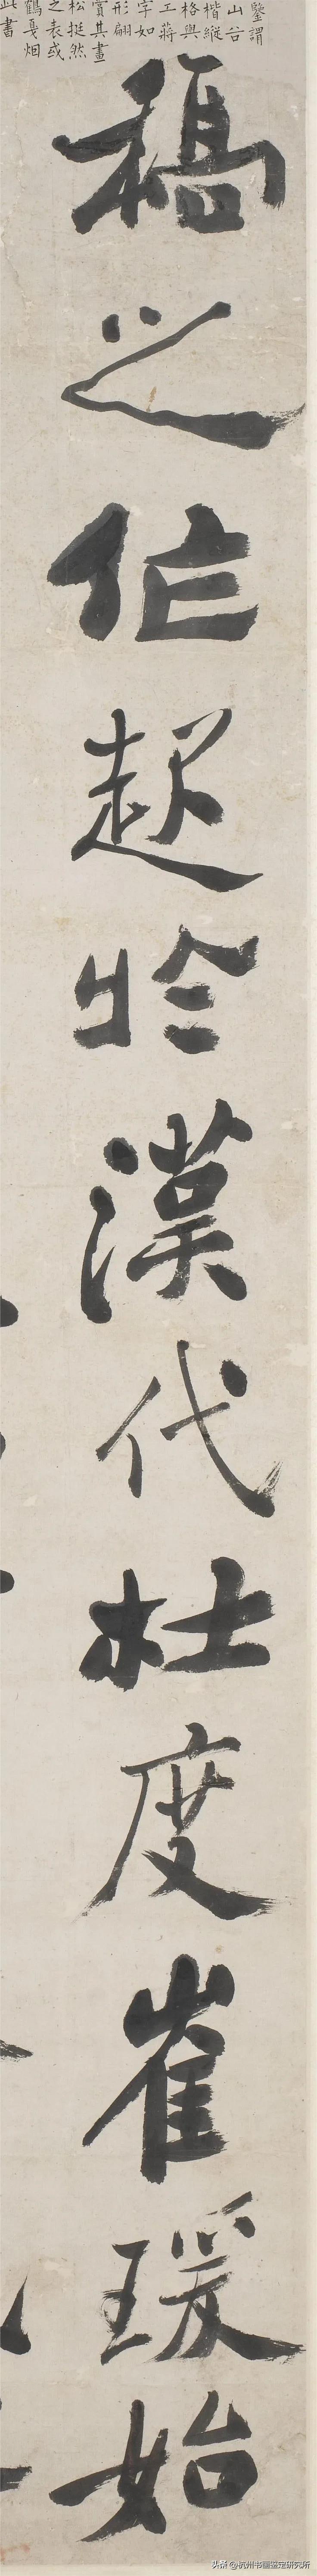 鑒謂
山谷
楷縱
格與
工蔣
字如
形翩
賞其畫
松挺然
之表或
鶴戛烟
此書
稿之作起於漢代杜度崔瑗始
头条 @杭州书画鉴定研究所